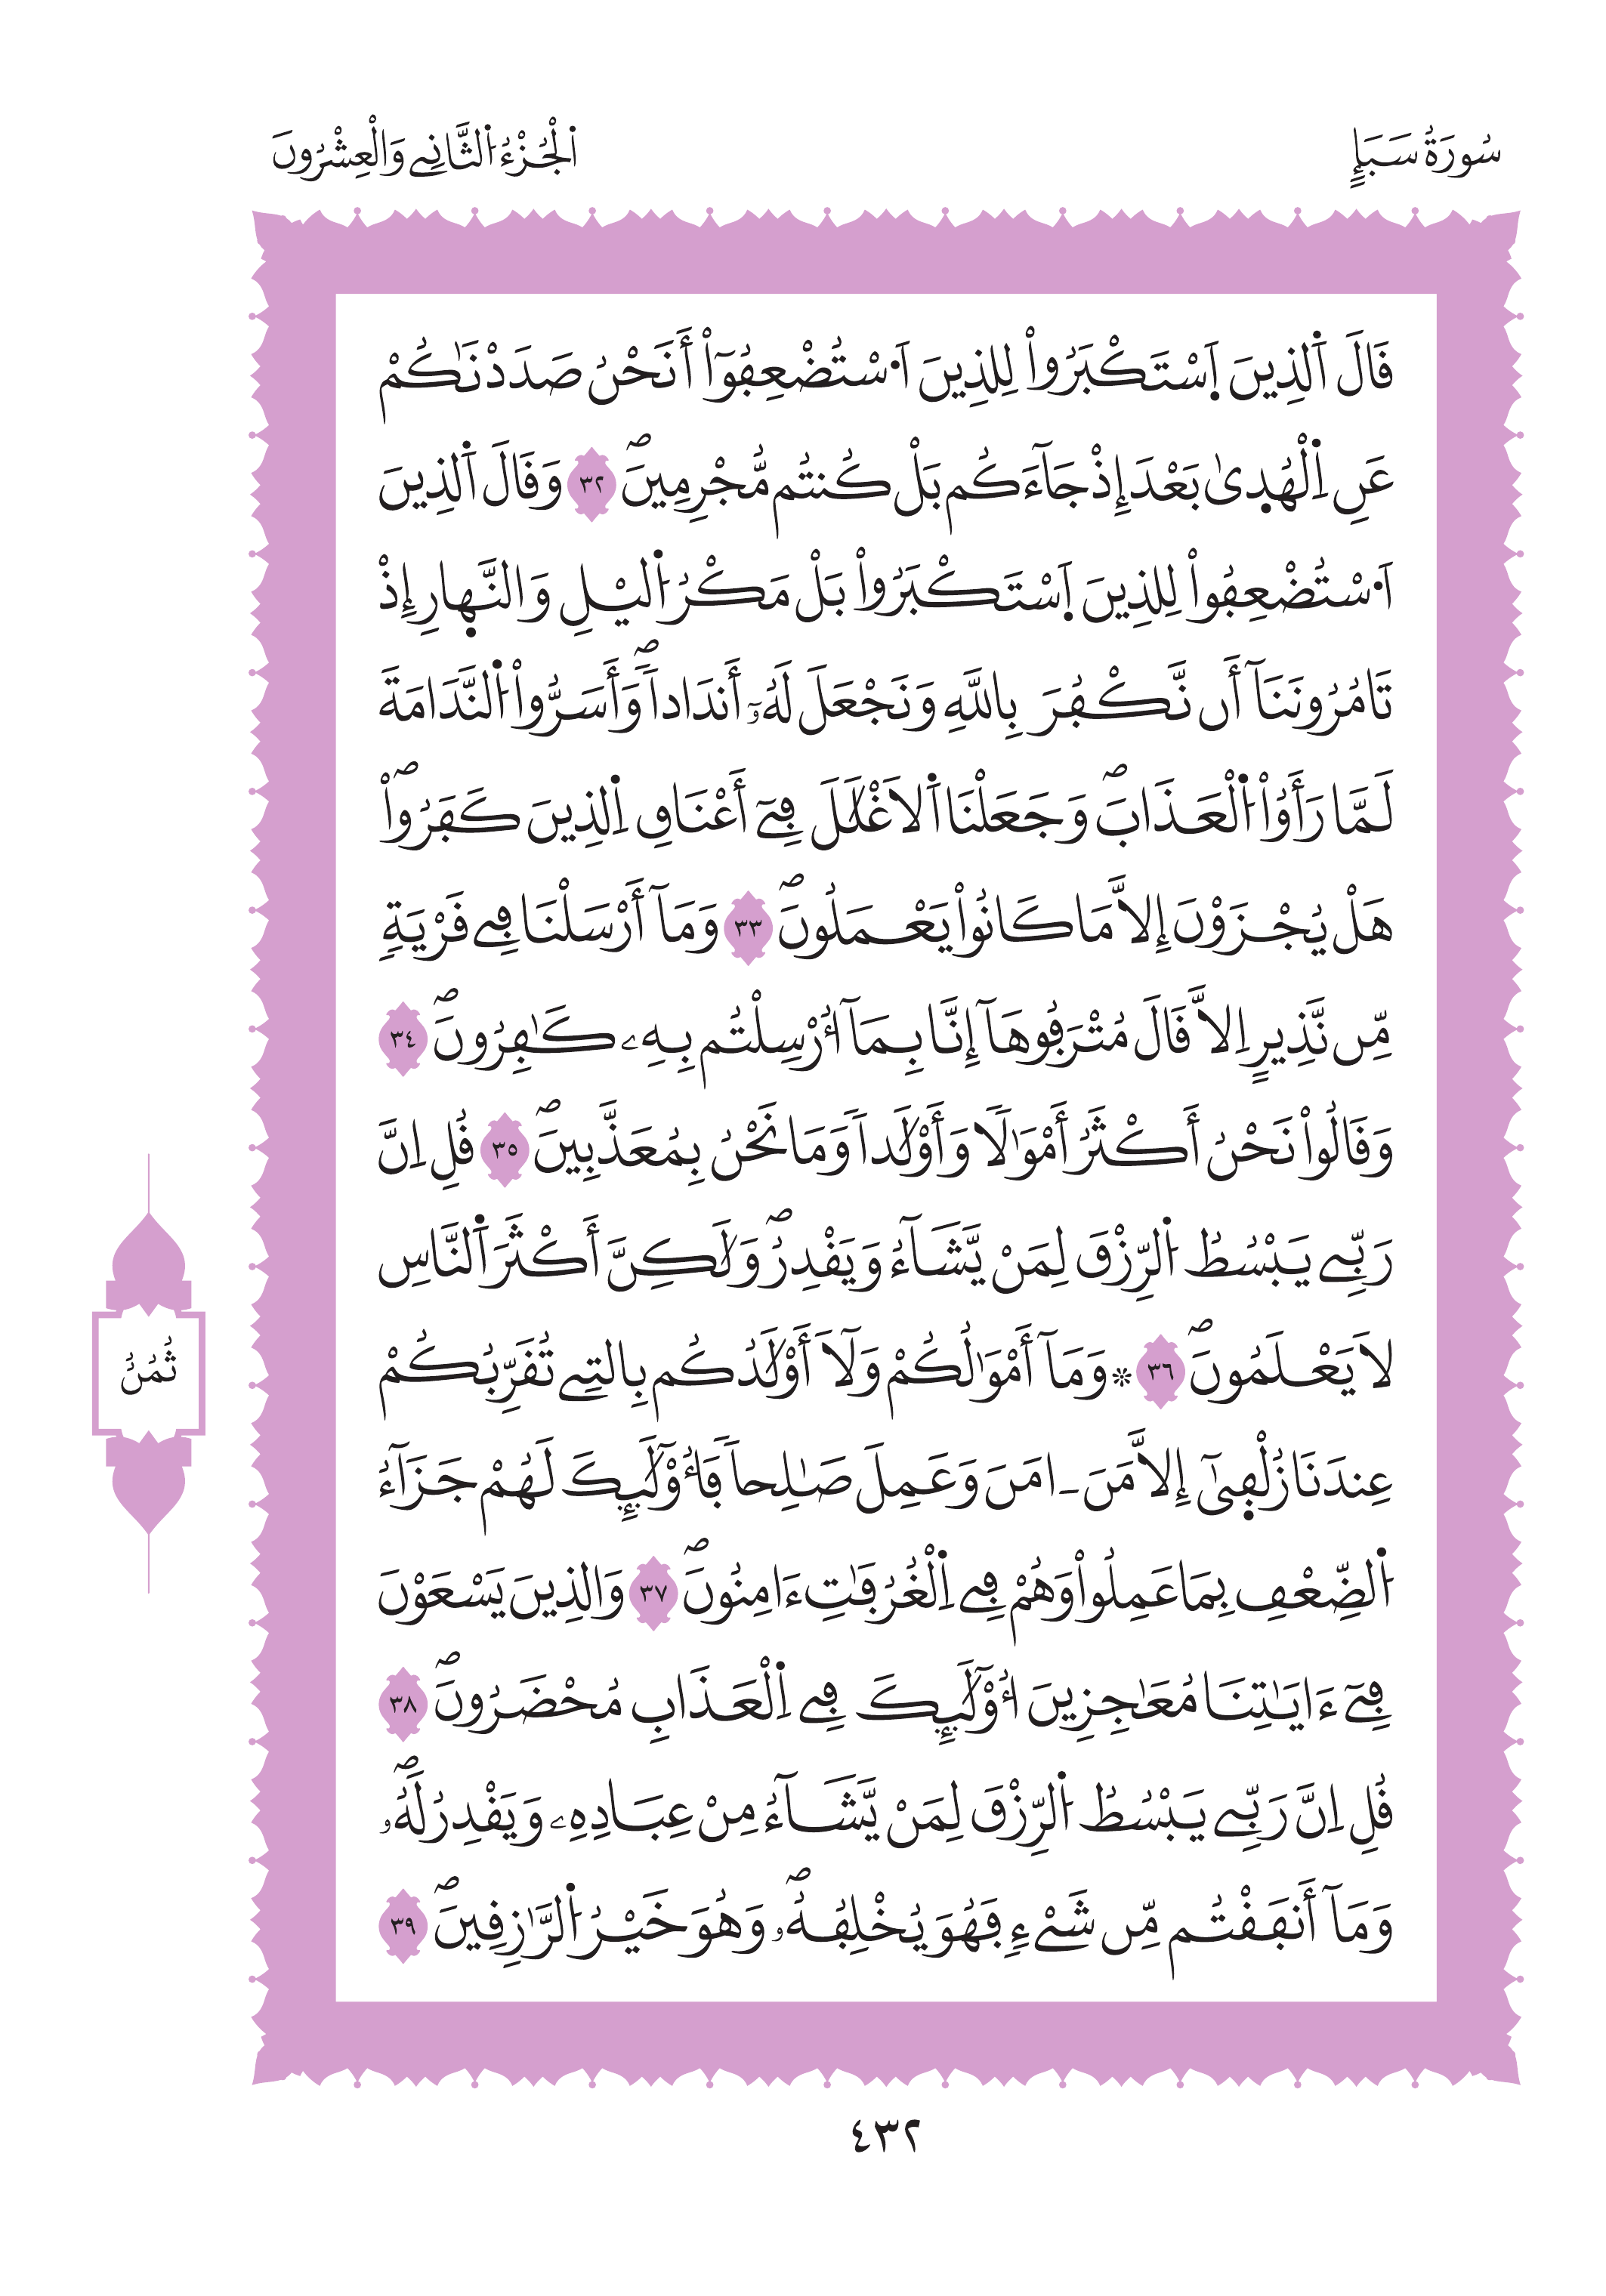 سُورَةُ سَبَإٍ
اَلْجُزْءُ اُلثَّانِے وَالْعِشْرُونَ
قَالَ اَلذِينَ اَسْتَكْبَرُواْ لِلذِينَ اَسْتُضْعِفُوٓاْ أَنَحْنُ صَدَدْنَٰكُمْ
عَنِ اِلْهُد۪ىٰ بَعْدَ إِذْ جَآءَكُم بَلْ كُنتُم مُّجْرِمِينَۖ ٣٢ وَقَالَ اَلذِينَ
اَسْتُضْعِفُواْ لِلذِينَ اَسْتَكْبَرُواْ بَلْ مَكْرُ اُليْلِ وَالنَّه۪ارِ إِذْ
تَامُرُونَنَآ أَن نَّكْفُرَ بِاللَّهِ وَنَجْعَلَ لَهُۥٓ أَندَاداٗۖ وَأَسَرُّواْ اُلنَّدَامَةَ
لَمَّا رَأَوُاْ اُلْعَذَابَۖ وَجَعَلْنَا اَلَاغْلَٰلَ فِےٓ أَعْنَاقِ اِلذِينَ كَفَرُواْۖ
هَلْ يُجْزَوْنَ إِلَّا مَا كَانُواْ يَعْمَلُونَۖ ٣٣ وَمَآ أَرْسَلْنَا فِے قَرْيَةٖ
مِّن نَّذِيرٍ اِلَّا قَالَ مُتْرَفُوهَآ إِنَّا بِمَآ أُرْسِلْتُم بِهِۦ كَٰفِرُونَۖ ٣٤
وَقَالُواْ نَحْنُ أَكْثَرُ أَمْوَٰلاٗ وَأَوْلَٰداٗ وَمَا نَحْنُ بِمُعَذَّبِينَۖ ٣٥ قُلِ اِنَّ
رَبِّے يَبْسُطُ اُلرِّزْقَ لِمَنْ يَّشَآءُ وَيَقْدِرُۖ وَلَٰكِنَّ أَكْثَرَ اَلنَّاسِ
لَا يَعْلَمُونَۖ ٣٦ ۞ وَمَآ أَمْوَٰلُكُمْ وَلَآ أَوْلَٰدُكُم بِالتِے تُقَرِّبُكُمْ
عِندَنَا زُلْف۪ىٰٓ إِلَّا مَنَ اٰمَنَ وَعَمِلَ صَٰلِحاٗ فَأُوْلَٰٓئِكَ لَهُمْ جَزَآءُ
اُلضِّعْفِ بِمَا عَمِلُواْ وَهُمْ فِے اِلْغُرُفَٰتِ ءَامِنُونَۖ ٣٧ وَالذِينَ يَسْعَوْنَ
فِےٓ ءَايَٰتِنَا مُعَٰجِزِينَ أُوْلَٰٓئِكَ فِے اِلْعَذَابِ مُحْضَرُونَۖ ٣٨
قُلِ اِنَّ رَبِّے يَبْسُطُ اُلرِّزْقَ لِمَنْ يَّشَآءُ مِنْ عِبَادِهِۦ وَيَقْدِرُ لَهُۥۖ
وَمَآ أَنفَقْتُم مِّن شَےْءٖ فَهُوَ يُخْلِفُهُۥۖ وَهُوَ خَيْرُ اُلرَّٰزِقِينَۖ ٣٩
ثُمُنٌ
٤٣٢